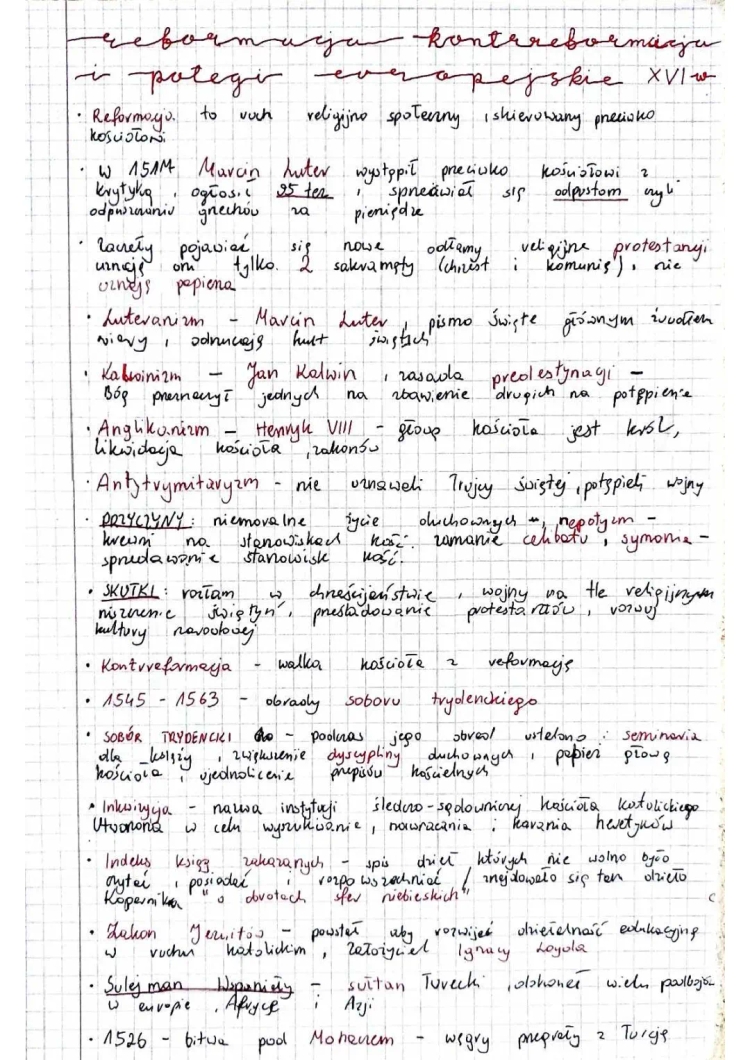 reformacja kontrreformacja
i potęgi europejskie XVI w
· Reformacja to ruch religijno społeczny, skierowany przeciwko
kościołowi
· W 1517 Marcin Luter wystąpił przeciwko kościołowi z
krytyką, ogłosił 95 tez, sprzeciwiał się odpustom czyli
odpuszczaniu grzechów za pieniądze
· zaczęły pojawiać się nowe odłamy religijne protestanci
uznają oni tylko 2 sakramęty (chrzest i komunię), nie
uznają papieża
· Luteranizm - Marcin Luter, pismo święte głównym źródłem
wiary, odrzucają kult świętych
· Kalwinizm - Jan Kalwin, zasada predestynacji -
Bóg przeznaczył jednych na zbawienie drugich na potępienie
· Anglikanizm - Henryk VIII - głową kościoła jest król,
likwidacja kościoła, zakonów
· Antytrymitaryzm - nie uznaweli Trójcy świętej, potępieli wojny
· PRZYCZYNY: niemoralne życie duchownych -, nepotyzm -
krewni na stanowiskach kość. łamanie celibatu, symonia -
sprzedawanie stanowisk kość.
· SKUTKI: rozłam w chrześcijaństwie, wojny na tle religijnym
niszczenie świątyń, prześladowanie protestantów, rozwój
kultury narodowej
· Kontrreformacja - walka kościoła z reformacją
· 1545 - 1563 - obrady soboru trydenckiego
· SOBÓR TRYDENCKI - podczas jego obrad ustalono: seminaria
dla księży, zwiększenie dyscypliny duchownych, papież głową
kościoła, ujednolicenie przepisów kościelnych
· Inkwizycja - nazwa instytucji śledczo-sądowniczej kościoła katolickiego
Utworzona w celu wyszukiwanie, nawracania i karania heretyków
· Indeks ksiąg zakazanych - spis dzieł których nie wolno było
czytać, posiadać i rozpowszechniać / znajdowało się tam dzieło
Kopernika "o obrotach sfer niebieskich"
· Zakon Jezuitów - powstał aby rozwijać działalność edukacyjną
w ruchu katolickim, założyciel Ignacy Loyola
· Sulejman Wspaniały - sułtan Turecki, dokonał wielu podbojów
w europie, Afryce i Azji
· 1526 - bitwa pod Mohaczem - węgry przegrały z Turcją